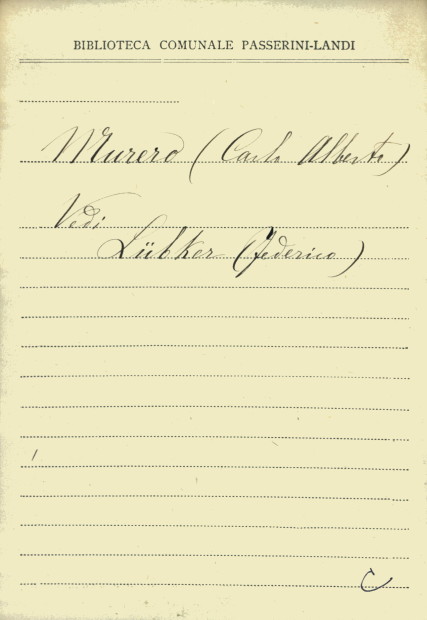 BIBLIOTECA COMUNALE PASSERINI-LANDI
Murero (Carlo Alberto)
Vedi
Lübker (Federico)
C